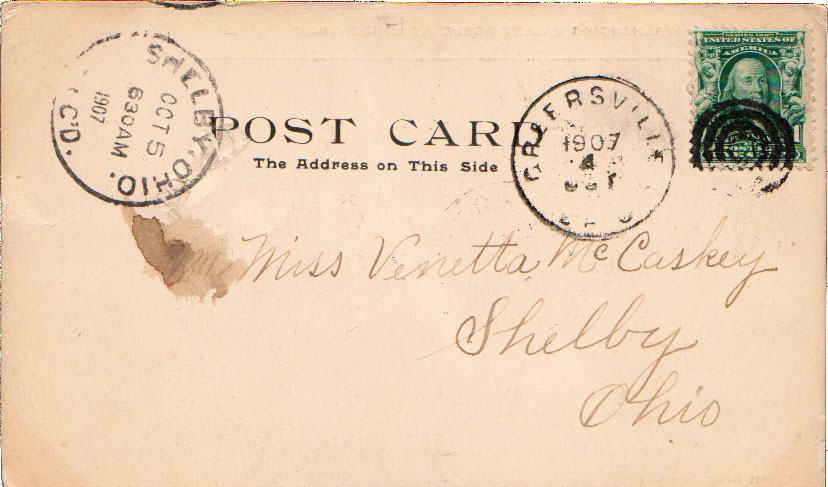 SHELBY, OHIO.
OCT 5
630AM
1907
C'D.
POST CARD
The Address on This Side
1907
4
OCT
SERIES 1902
UNITED STATES OF
AMERICA
1
Miss Venetta McCaskey
Shelby
Ohio